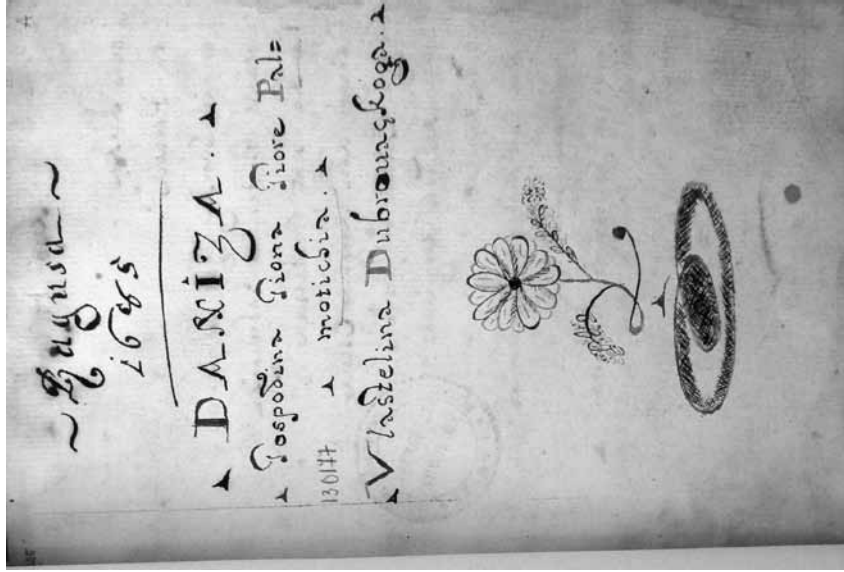 ~ Ragusa ~
1685
DANIZA.
Gospodina Giona Giore Pal=
motichia.
130177
Vlastelina Dubrounçkoga.